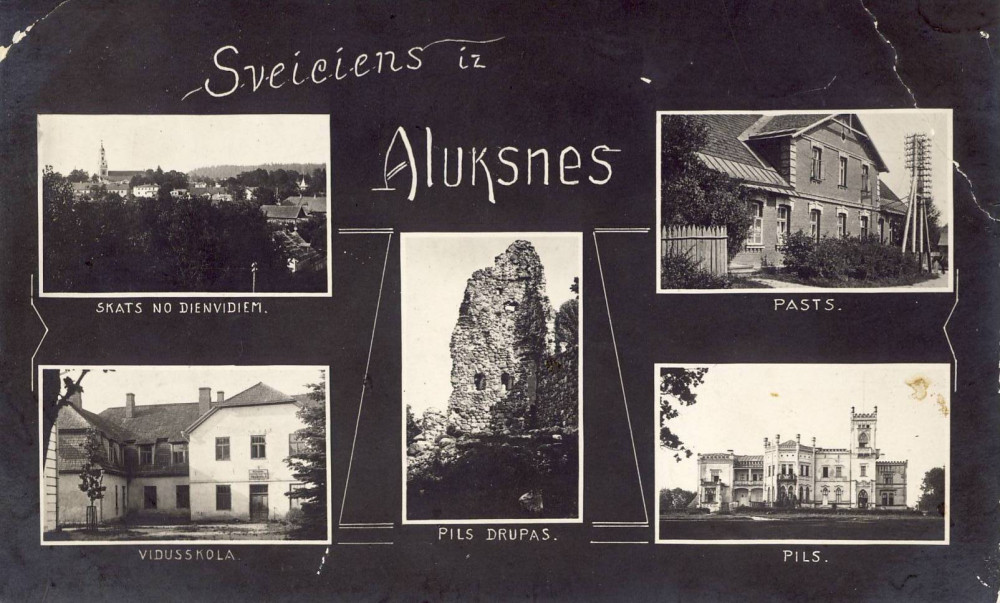 Sveiciens iz
Aluksnes
SKATS NO DIENVIDIEM.
PASTS.
VIDUSSKOLA.
PILS DRUPAS.
PILS.